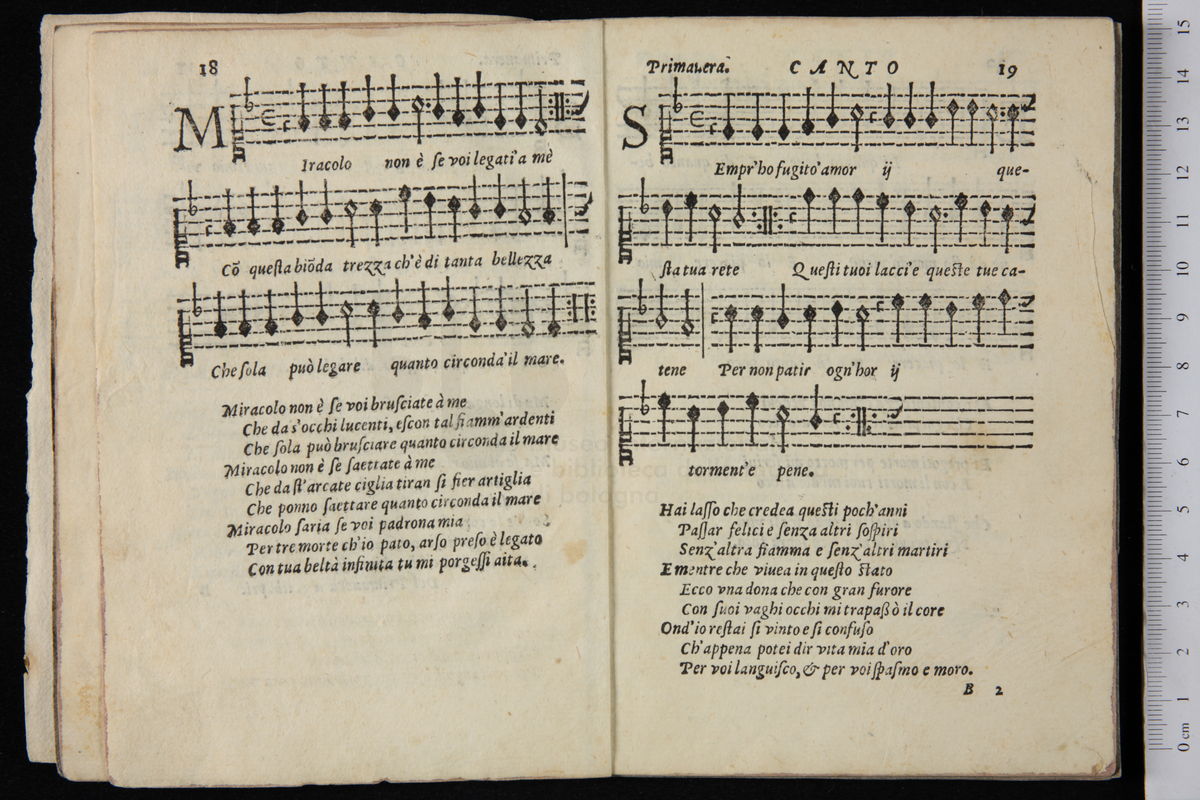 18
MIracolo non è ſe voi legati'a mè
Cō queſta biōda trezza ch'è di tanta bellezza
Che ſola può legare quanto circonda'il mare.
Miracolo non è ſe voi bruſciate à me
Che da s'occhi lucenti, eſcon tal fiamm'ardenti
Che ſola può bruſciare quanto circonda il mare
Miracolo non è ſe ſaettate à me
Che da ſt'arcate ciglia tiran ſi fier artiglia
Che ponno ſaettare quanto circonda il mare
Miracolo ſaria ſe voi padrona mia
Per tre morte ch'io pato, arſo preſo è legato
Con tua beltà infinita tu mi porgeſſi aita.
Primauera. CANTO 19
SEmpr'ho fugito'amor ij que-
ſta tua rete Queſti tuoi lacci'e queſte tue ca-
tene Per non patir ogn'hor ij
torment'e pene.
Hai laſſo che credea queſti poch'anni
Paſſar felici e ſenza altri ſoſpiri
Senz'altra fiamma e ſenz'altri martiri
E mentre che viuea in queſto ſtato
Ecco vna dona che con gran furore
Con ſuoi vaghi occhi mi trapaßò il core
Ond'io reſtai ſi vinto e ſi confuſo
Ch'appena potei dir vita mia d'oro
Per voi languiſco, & per voi ſpaſmo e moro.
B 2
biblioteca
di bologna
15
14
13
12
11
10
9
8
7
6
5
4
3
2
1
0 cm